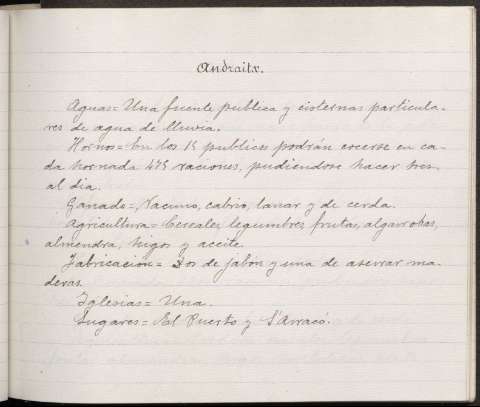 Andraitx.
Aguas = Una fuente publica y cisternas particula-
res de agua de lluvia.
Hornos = En los 15 publicos podrán cocerse en ca-
da hornada 475 raciones, pudiendose hacer tres
al dia.
Ganado = Vacuno, cabrio, lanar y de cerda.
Agricultura = Cereales, legumbres, frutas, algarrobas,
almendra, higos y aceite.
Fabricación = Dos de jabón y una de aserrar ma-
deras.
Iglesias = Una.
Lugares = El Puerto y S'Arracó.